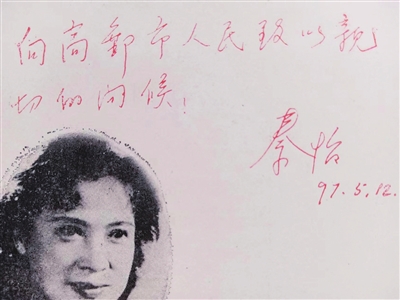 向高邮市人民致以亲
切的问候！
秦怡
97.5.12.